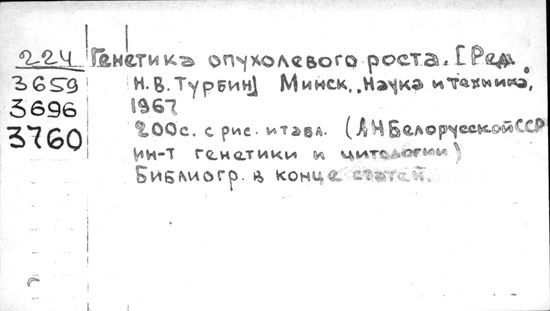 224 Генетика опухолевого роста. [Ред.
3659 Н.В.Турбин] Минск, "Наука и техника",
3696 1967
3760 200с. с рис. и табл. (АН Белорусской ССР
ин-т генетики и цитологии)
Библиогр. в конце статей.